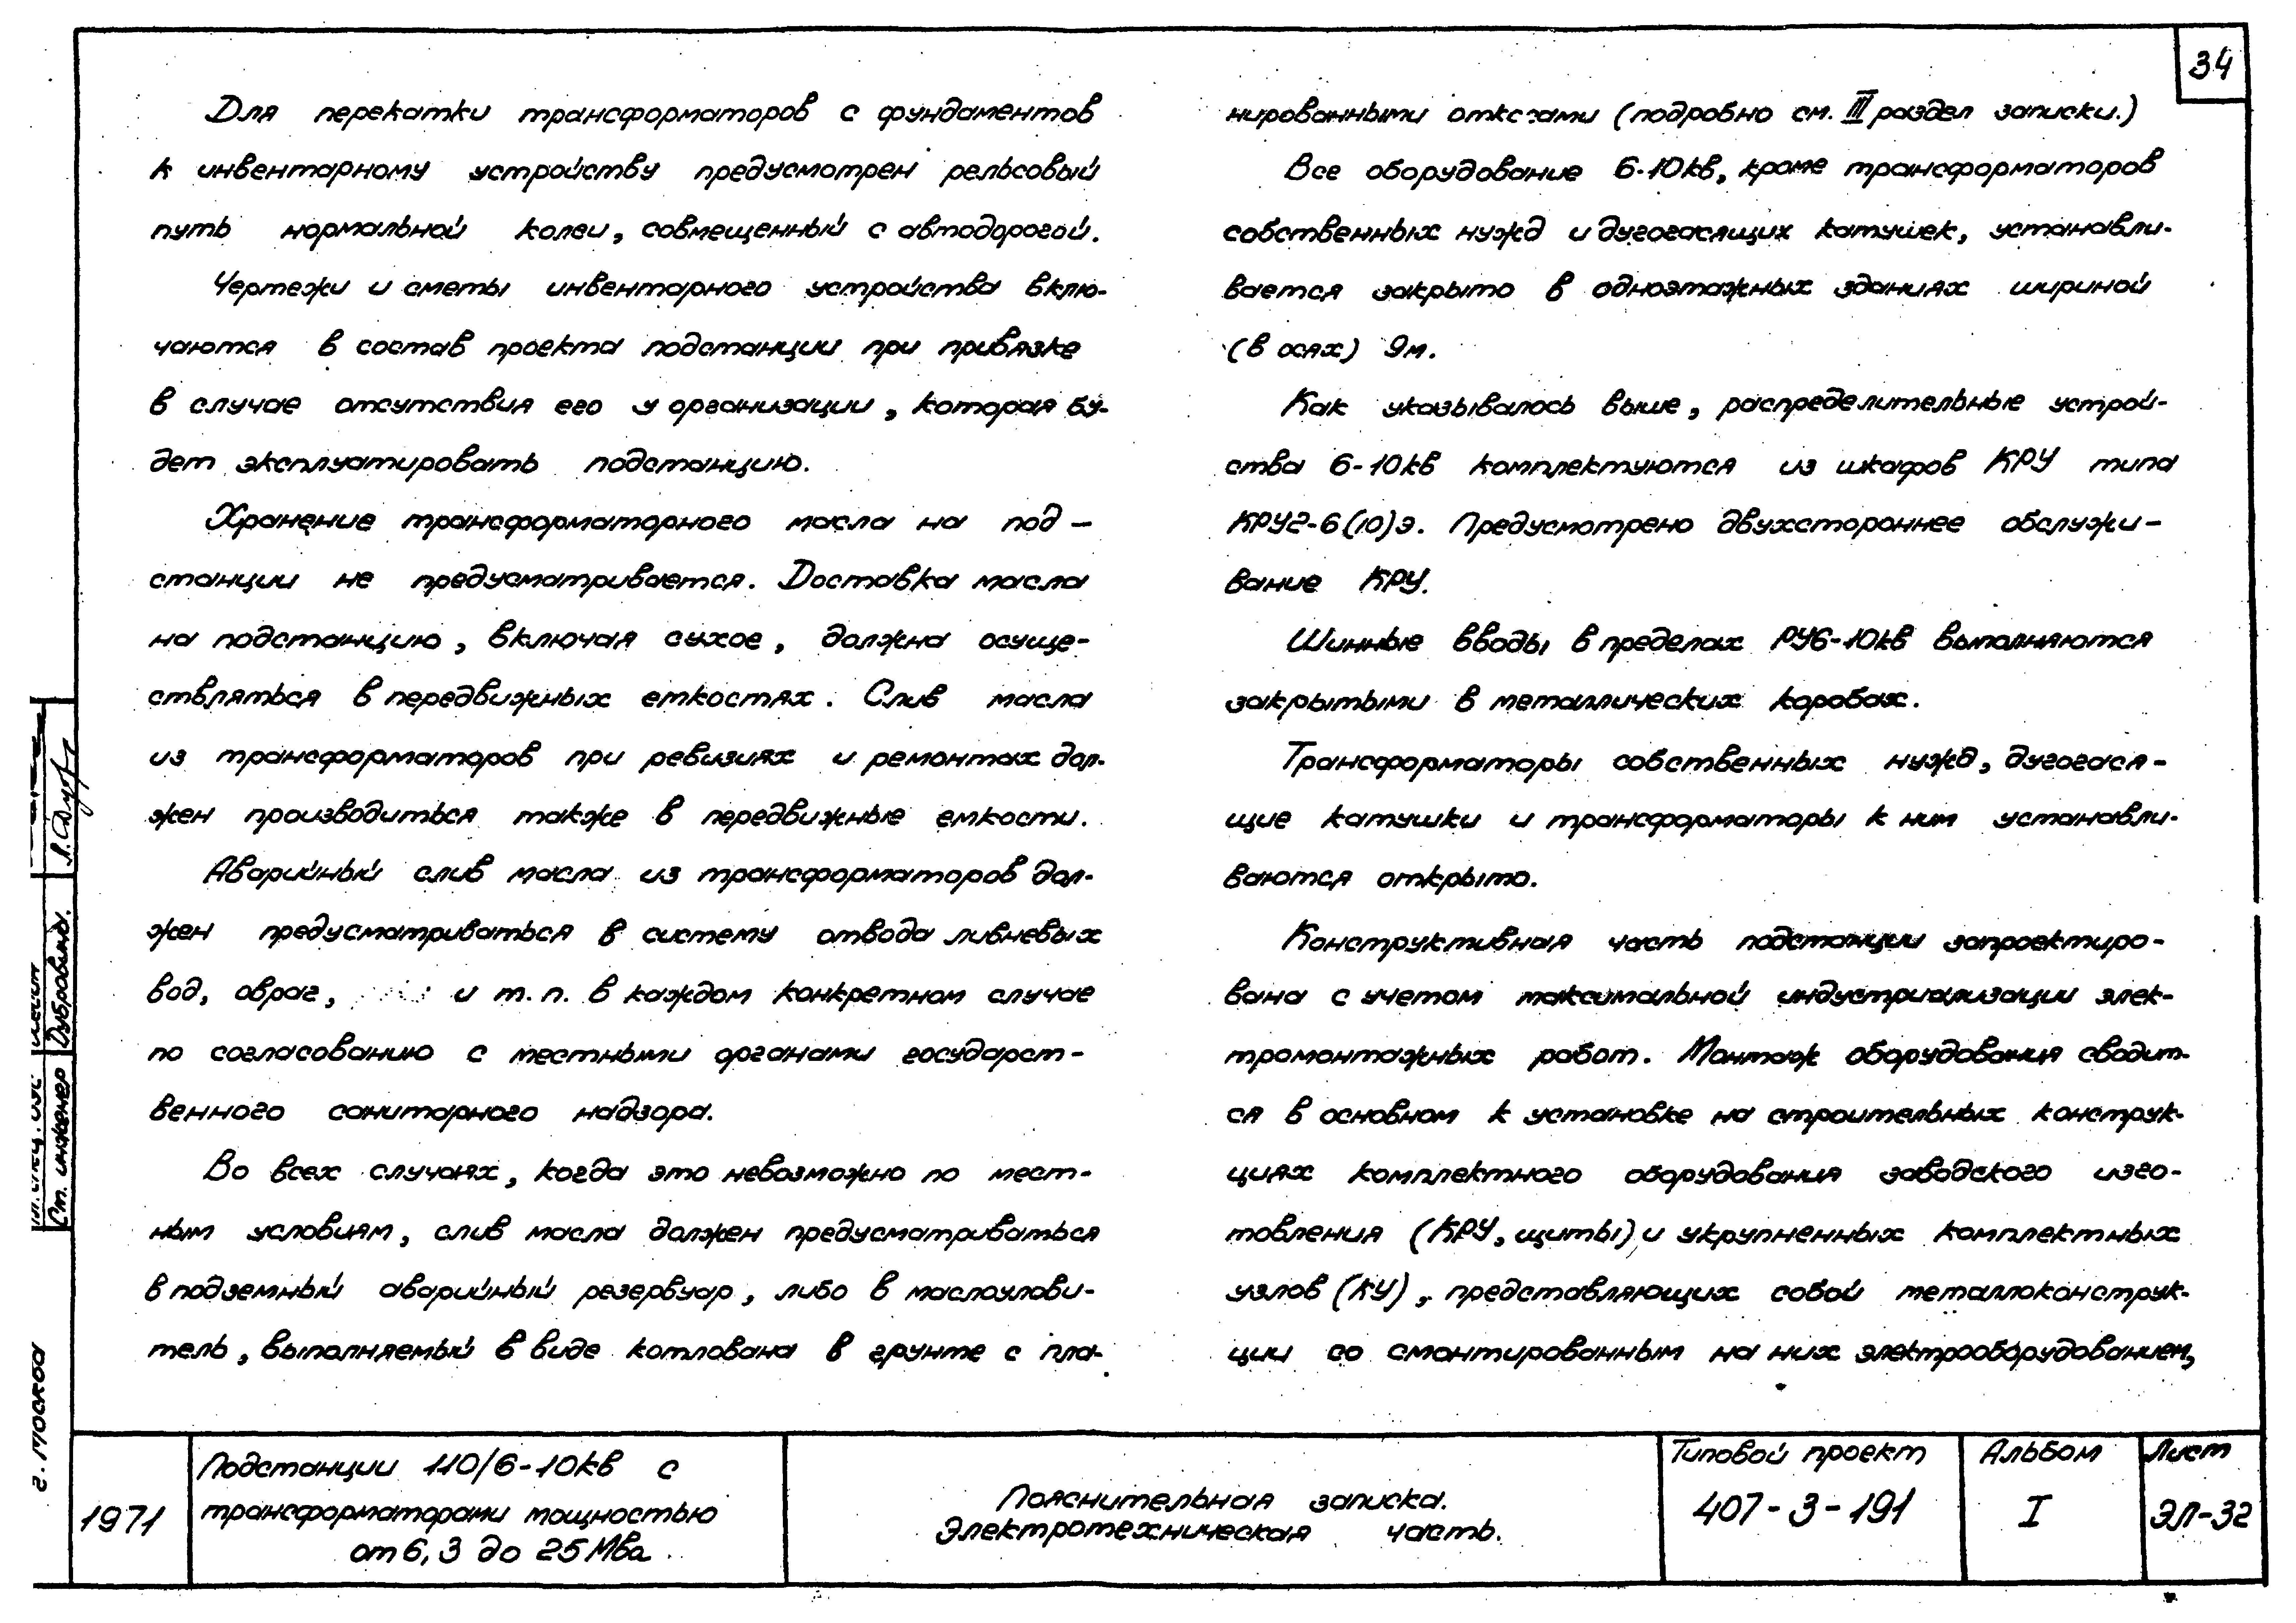 34
Для перекатки трансформаторов с фундаментов
к инвентарному устройству предусмотрен рельсовый
путь нормальной колеи, совмещенный с автодорогой.
Чертежи и сметы инвентарного устройства вклю-
чаются в состав проекта подстанции при привязке
в случае отсутствия его у организации, которая бу-
дет эксплуатировать подстанцию.
Хранение трансформаторного масла на под-
станции не предусматривается. Доставка масла
на подстанцию, включая сухое, должна осуще-
ствляться в передвижных емкостях. Слив масла
из трансформаторов при ревизиях и ремонтах дол-
жен производиться также в передвижные емкости.
Аварийный слив масла из трансформаторов дол-
жен предусматриваться в систему отвода ливневых
вод, овраг, и т.п. в каждом конкретном случае
по согласованию с местными органами государст-
венного санитарного надзора.
Во всех случаях, когда это невозможно по мест-
ным условиям, слив масла должен предусматриваться
в подземный аварийный резервуар, либо в маслоулови-
тель, выполняемый в виде котлована в грунте с пла-
нированными откосами (подробно см. III раздел записки.)
Все оборудование 6-10кв, кроме трансформаторов
собственных нужд и дугогасящих катушек, устанавли-
вается закрыто в одноэтажных зданиях шириной
(в осях) 9м.
Как указывалось выше, распределительные устрой-
ства 6-10кв комплектуются из шкафов КРУ типа
КРУ2-6(10)э. Предусмотрено двухстороннее обслужи-
вание КРУ.
Шинные вводы в пределах РУ6-10кв выполняются
закрытыми в металлических коробах.
Трансформаторы собственных нужд, дугогася-
щие катушки и трансформаторы к ним устанавли-
ваются открыто.
Конструктивная часть подстанции запроектиро-
вана с учетом максимальной индустриализации элек-
тромонтажных работ. Монтаж оборудования сводит-
ся в основном к установке на строительных конструк-
циях комплектного оборудования заводского изго-
товления (КРУ, щиты) и укрупненных комплектных
узлов (КУ), представляющих собой металлоконструк-
ции со смонтированным на них электрооборудованием,
Ст. инженер Дубровина.
г. Москва
1971
Подстанции 110/6-10кв с
трансформаторами мощностью
от 6,3 до 25 Мва
Пояснительная записка.
Электротехническая часть.
Типовой проект
407-3-191
Альбом
I
Лист
ЭЛ-32